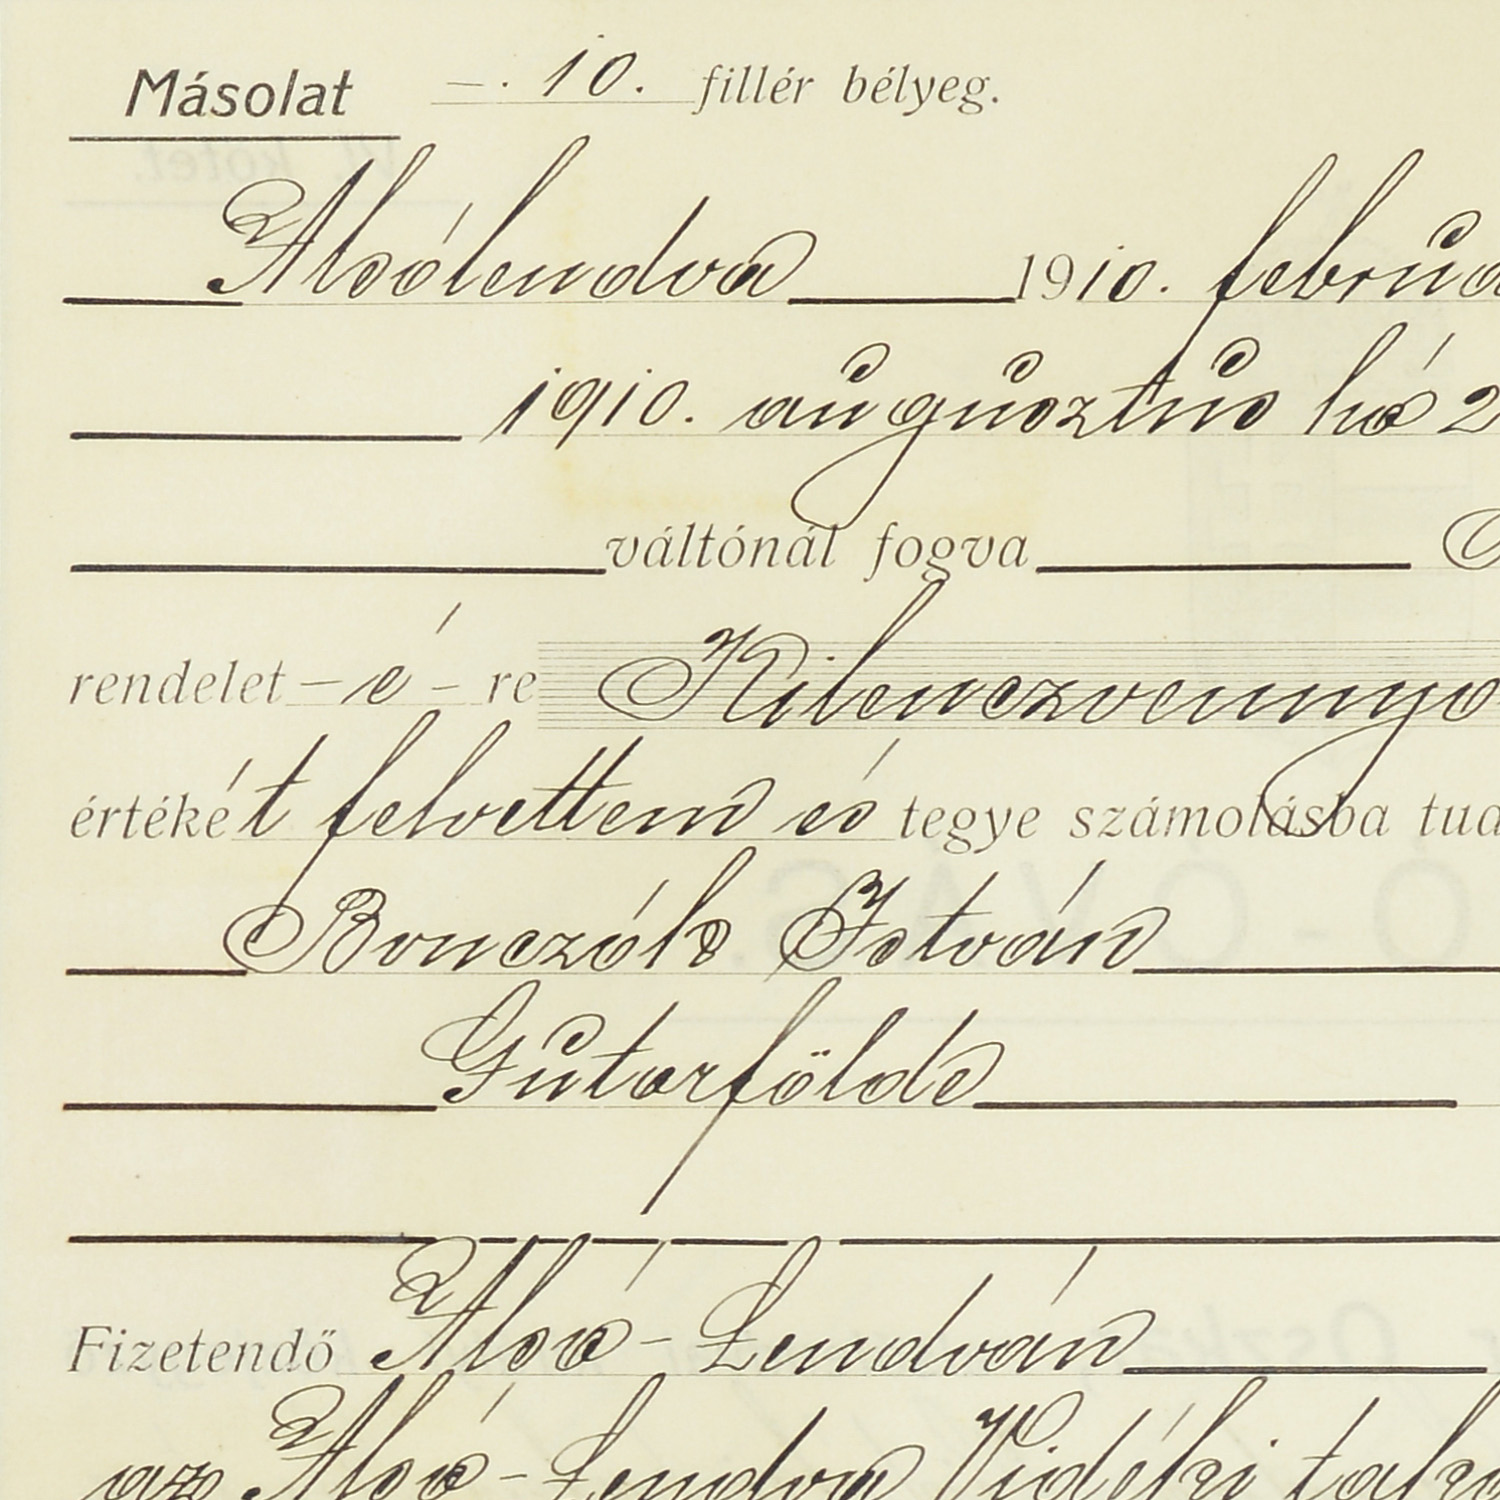 Másolat –. 10. fillér bélyeg.
Alsólendva 1910. februá
1910. augusztus hó 2
váltónál fogva
rendelet – é – re Kilenczvennyo
értékét felvettem és tegye számolásba tud
Bonczók István
Gutorfölde
Fizetendő Alsó-Lendván
az Alsó-Lendva Vidéki taka